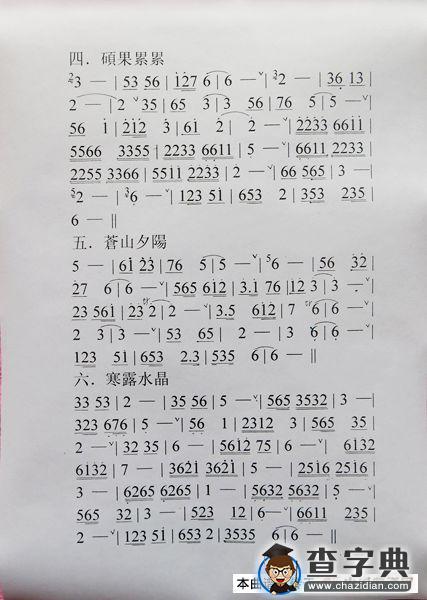 四．碩果累累
3 — | 53 56 | 127 6 | 6 — | 2 — | 36 13 |
2 — | 2 35 | 65 3 | 3 56 | 76 5 | 5 — |
56 1 | 212 3 | 61 2 | 2 — | 2233 6611 |
5566 3355 | 2233 6611 | 5 — | 6611 2233 |
2255 3366 | 5511 2233 | 2 — | 66 565 | 3 — |
2 — | 6 — | 123 51 | 653 2 | 353 235 |
6 — ||
五．蒼山夕陽
5 — | 61 23 | 76 5 | 5 — | 6 — | 56 32 |
27 6 | 6 — | 565 612 | 3.1 76 | 12 3 | 3 — |
23 561 | 23 2 | 2 — | 3.5 612 | 7 6 | 6 — |
2 3 | 3 — | 53 65 | 2 — | 3 6 | 6 — |
123 51 | 653 2.3 | 535 6 | 6 — ||
六．寒露水晶
33 53 | 2 — | 35 56 | 5 — | 565 3532 | 3 — |
323 676 | 5 — | 56 1 | 2312 3 | 565 35 |
2 — | 32 35 | 6 — | 5612 75 | 6 — | 60132
6132 | 7 — | 3621 3621 | 5 — | 2516 2516 |
3 — | 6265 6265 | 1 — | 5632 5632 | 5 — |
565 32 | 3 — | 523 12 | 6 — | 6611 235 |
2 — | 123 51 | 653 2 | 3535 6 | 6 — ||
查字典
www.chazidian.com
本曲